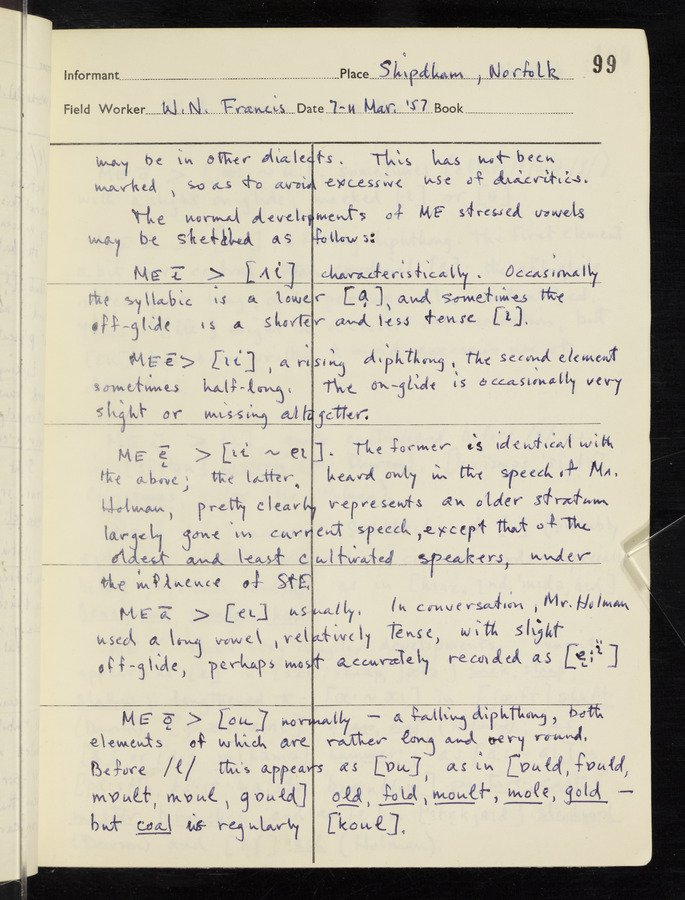 99
Informant Place Shipdham, Norfolk
Field Worker W.N. Francis Date 7-11 Mar. '57 Book
may be in other dialects. This has not been
marked, so as to avoid excessive use of diacritics.
The normal developments of ME stressed vowels
may be sketched as follows:
ME ī > [ʌi] characteristically. Occasionally
the syllabic is a lower [ạ], and sometimes the
off-glide is a shorter and less tense [ɩ].
ME ẹ̄ > [ɩi], a rising diphthong, the second element
sometimes half-long. The on-glide is occasionally very
slight or missing altogether.
ME ę̄ > [ɩi ~ eɩ]. The former is identical with
the above; the latter, heard only in the speech of Mr.
Holman, pretty clearly represents an older stratum
largely gone in current speech, except that of the
oldest and least cultivated speakers, under
the influence of StE
ME ā > [eɩ] usually. In conversation, Mr. Holman
used a long vowel, relatively tense, with slight
off-glide, perhaps most accurately recorded as
ME ǭ > [ou] normally – a falling diphthong, both
elements of which are rather long and very round.
Before /l/ this appears as [ɒu], as in [ɒuld, fɒuld,
mɒult, mɒul, gɒuld] old, fold, moult, mole, gold –
but coal is regularly [koul].